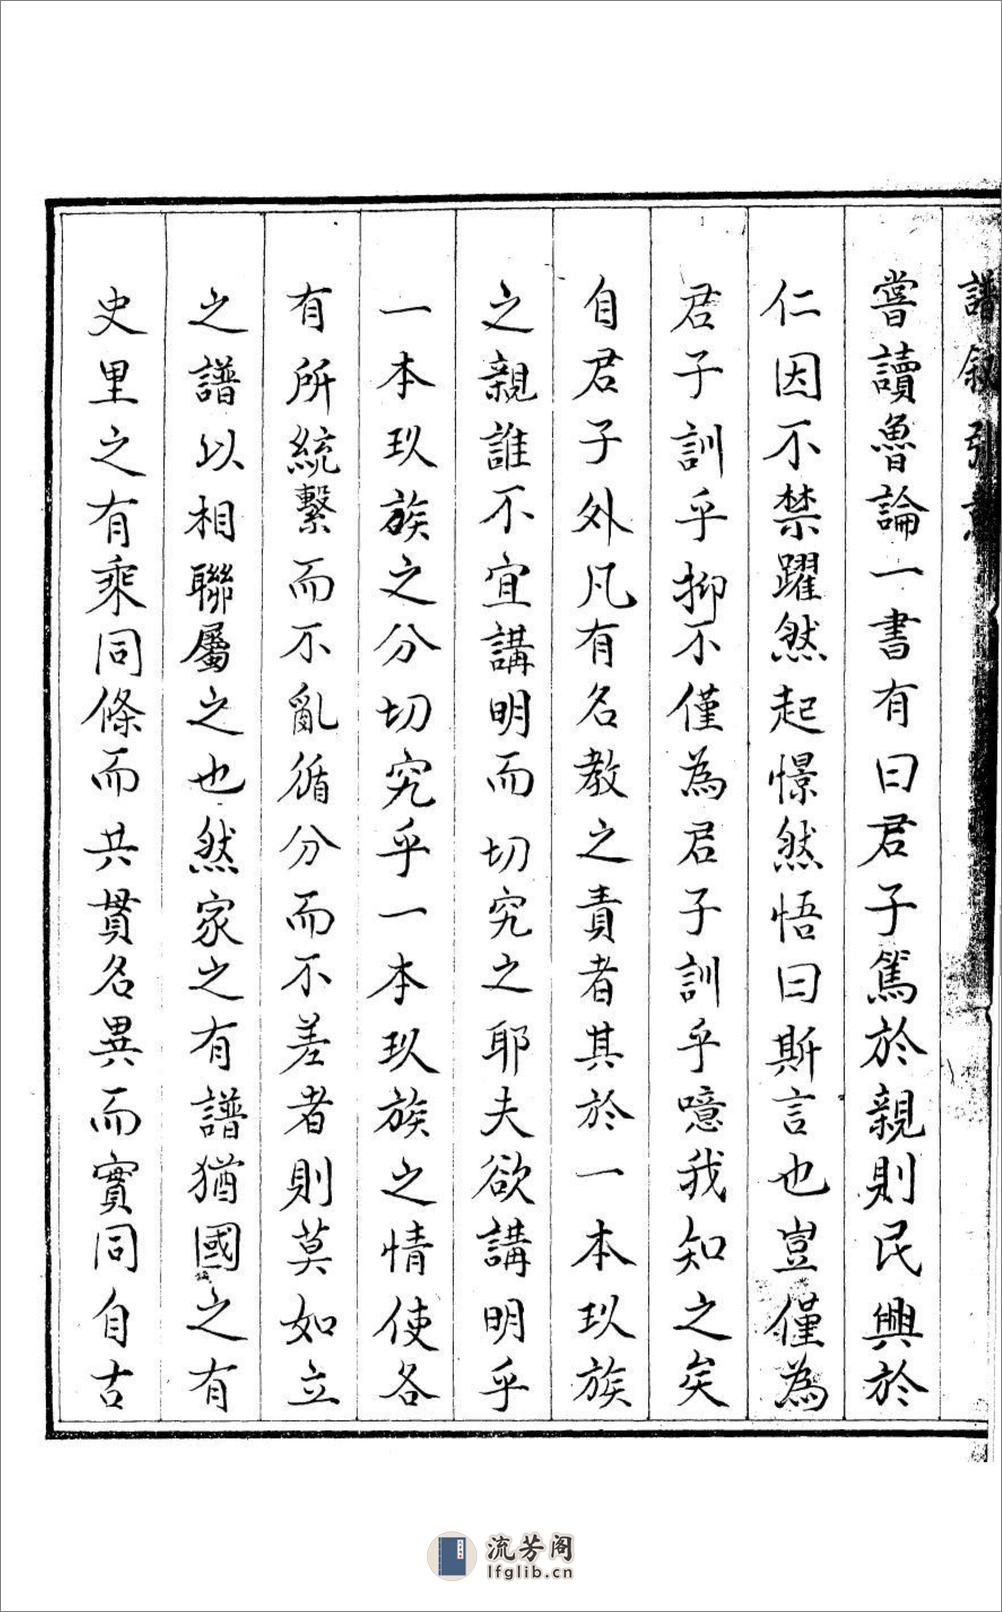 譜叙引
嘗讀魯論一書有曰君子篤於親則民興於
仁因不禁躍然起憬然悟曰斯言也豈僅為
君子訓乎抑不僅為君子訓乎噫我知之矣
自君子外凡有名教之責者其於一本玖族
之親誰不宜講明而切究之耶夫欲講明乎
一本玖族之分切究乎一本玖族之情使各
有所統繫而不亂循分而不差者則莫如立
之譜以相聯屬之也然家之有譜猶國之有
史里之有乘同條而共貫名異而實同自古
流芳阁
lfglib.cn